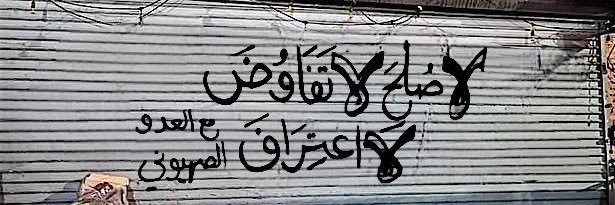 لا صُلحَ لا تَفَاوُضَ
لَا اعتِرَافَ مع العدو
الصهيوني